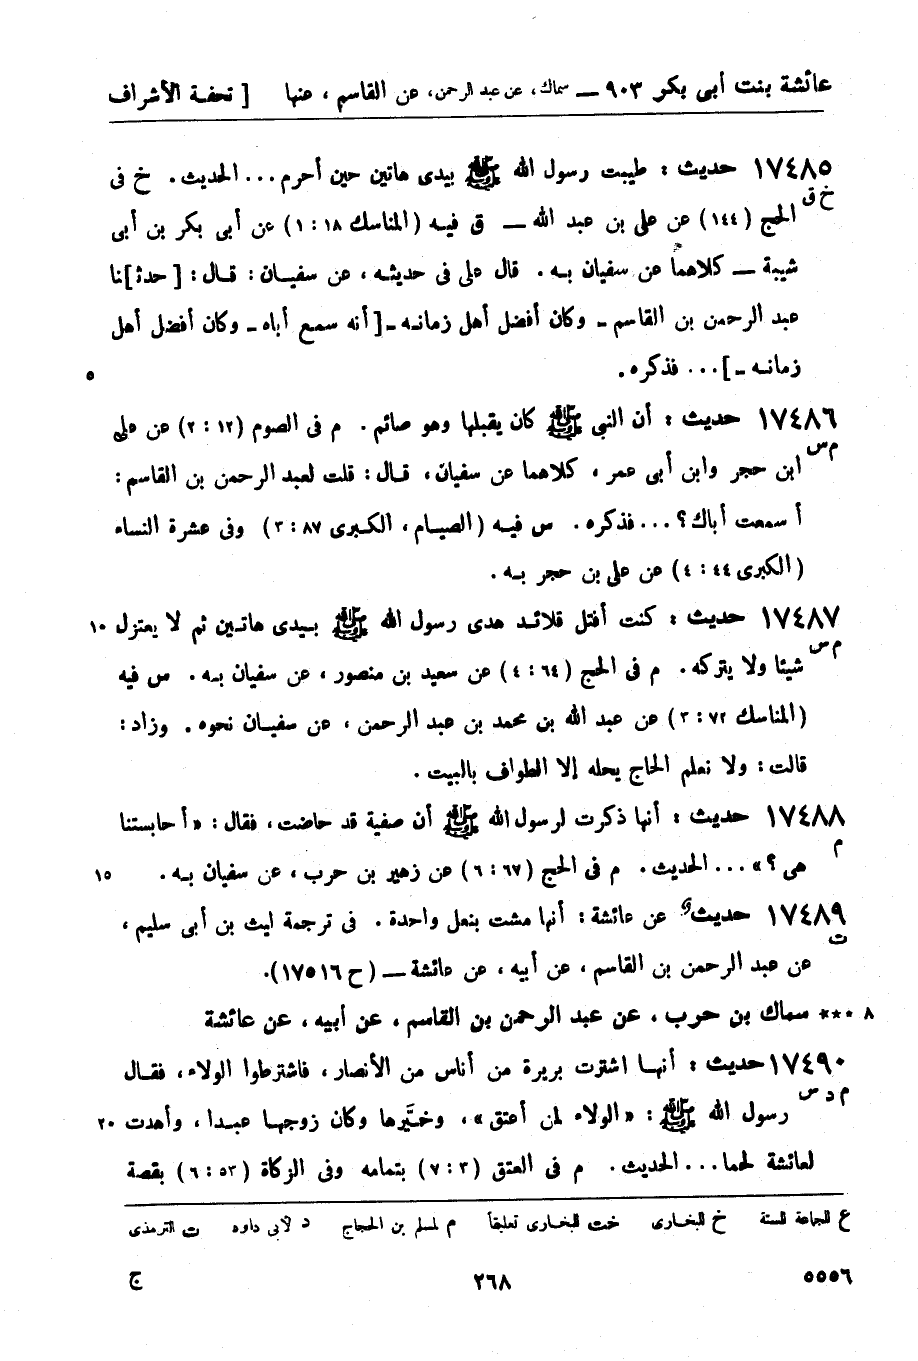 عائشة بنت أبى بكر ٩٠٣ — سماك، عن عبد الرحمن، عن القاسم، عنها [ تحفة الأشراف
١٧٤٨٥ حديث : طيبت رسول الله ﷺ بيدى هاتين حين أحرم ... الحديث. خ فى
خ ق
الحج (١٤٤) عن على بن عبد الله — ق فيه (المناسك ١٨ : ١) عن أبى بكر بن أبى
شيبة — كلاهما عن سفيان به. قال على فى حديثه، عن سفيان : قال : [حدث]نا
عبد الرحمن بن القاسم - وكان أفضل أهل زمانه -[ أنه سمع أباه - وكان أفضل أهل
زمانه -] ... فذكره. ٥
١٧٤٨٦ حديث : أن النبى ﷺ كان يقبلها وهو صائم. م فى الصوم (١٢ : ٢) عن على
م س
ابن حجر وابن أبى عمر، كلاهما عن سفيان، قال : قلت لعبد الرحمن بن القاسم :
أ سمعت أباك؟ ... فذكره. س فيه (الصيام، الكبرى ٨٧ : ٣) وفى عشرة النساء
(الكبرى ٤٤ : ٤) عن على بن حجر به.
١٧٤٨٧ حديث : كنت أفتل قلائد هدى رسول الله ﷺ بيدى هاتين ثم لا يعتزل ١٠
م س
شيئا ولا يتركه. م فى الحج (٦٤ : ٤) عن سعيد بن منصور، عن سفيان به. س فيه
(المناسك ٧٢ : ٣) عن عبد الله بن محمد بن عبد الرحمن، عن سفيان نحوه. وزاد :
قالت : ولا نعلم الحاج يحله إلا الطواف بالبيت.
١٧٤٨٨ حديث : أنها ذكرت لرسول الله ﷺ أن صفية قد حاضت، فقال : «أ حابستنا
م
هى؟» ... الحديث. م فى الحج (٦٧ : ٦) عن زهير بن حرب، عن سفيان به. ١٥
١٧٤٨٩ حديث عن عائشة : أنها مشت بنعل واحدة. فى ترجمة ليث بن أبى سليم،
ت
عن عبد الرحمن بن القاسم، عن أبيه، عن عائشة — (ح ١٧٥١٦).
٨ *** سماك بن حرب، عن عبد الرحمن بن القاسم، عن أبيه، عن عائشة
١٧٤٩٠ حديث : أنها اشترت بريرة من أناس من الأنصار، فاشترطوا الولاء، فقال
م د س
رسول الله ﷺ : «الولاء لمن أعتق»، وخيَّرها وكان زوجها عبدا، وأهدت ٢٠
لعائشة لحما ... الحديث. م فى العتق (٣ : ٧) بتمامه وفى الزكاة (٥٣ : ٦) بقصة
ع للجماعة الستة خ للبخارى خت للبخارى تعليقاً م لمسلم بن الحجاج د لأبى داود ت الترمذى
٥٥٥٦ ٢٦٨ ج